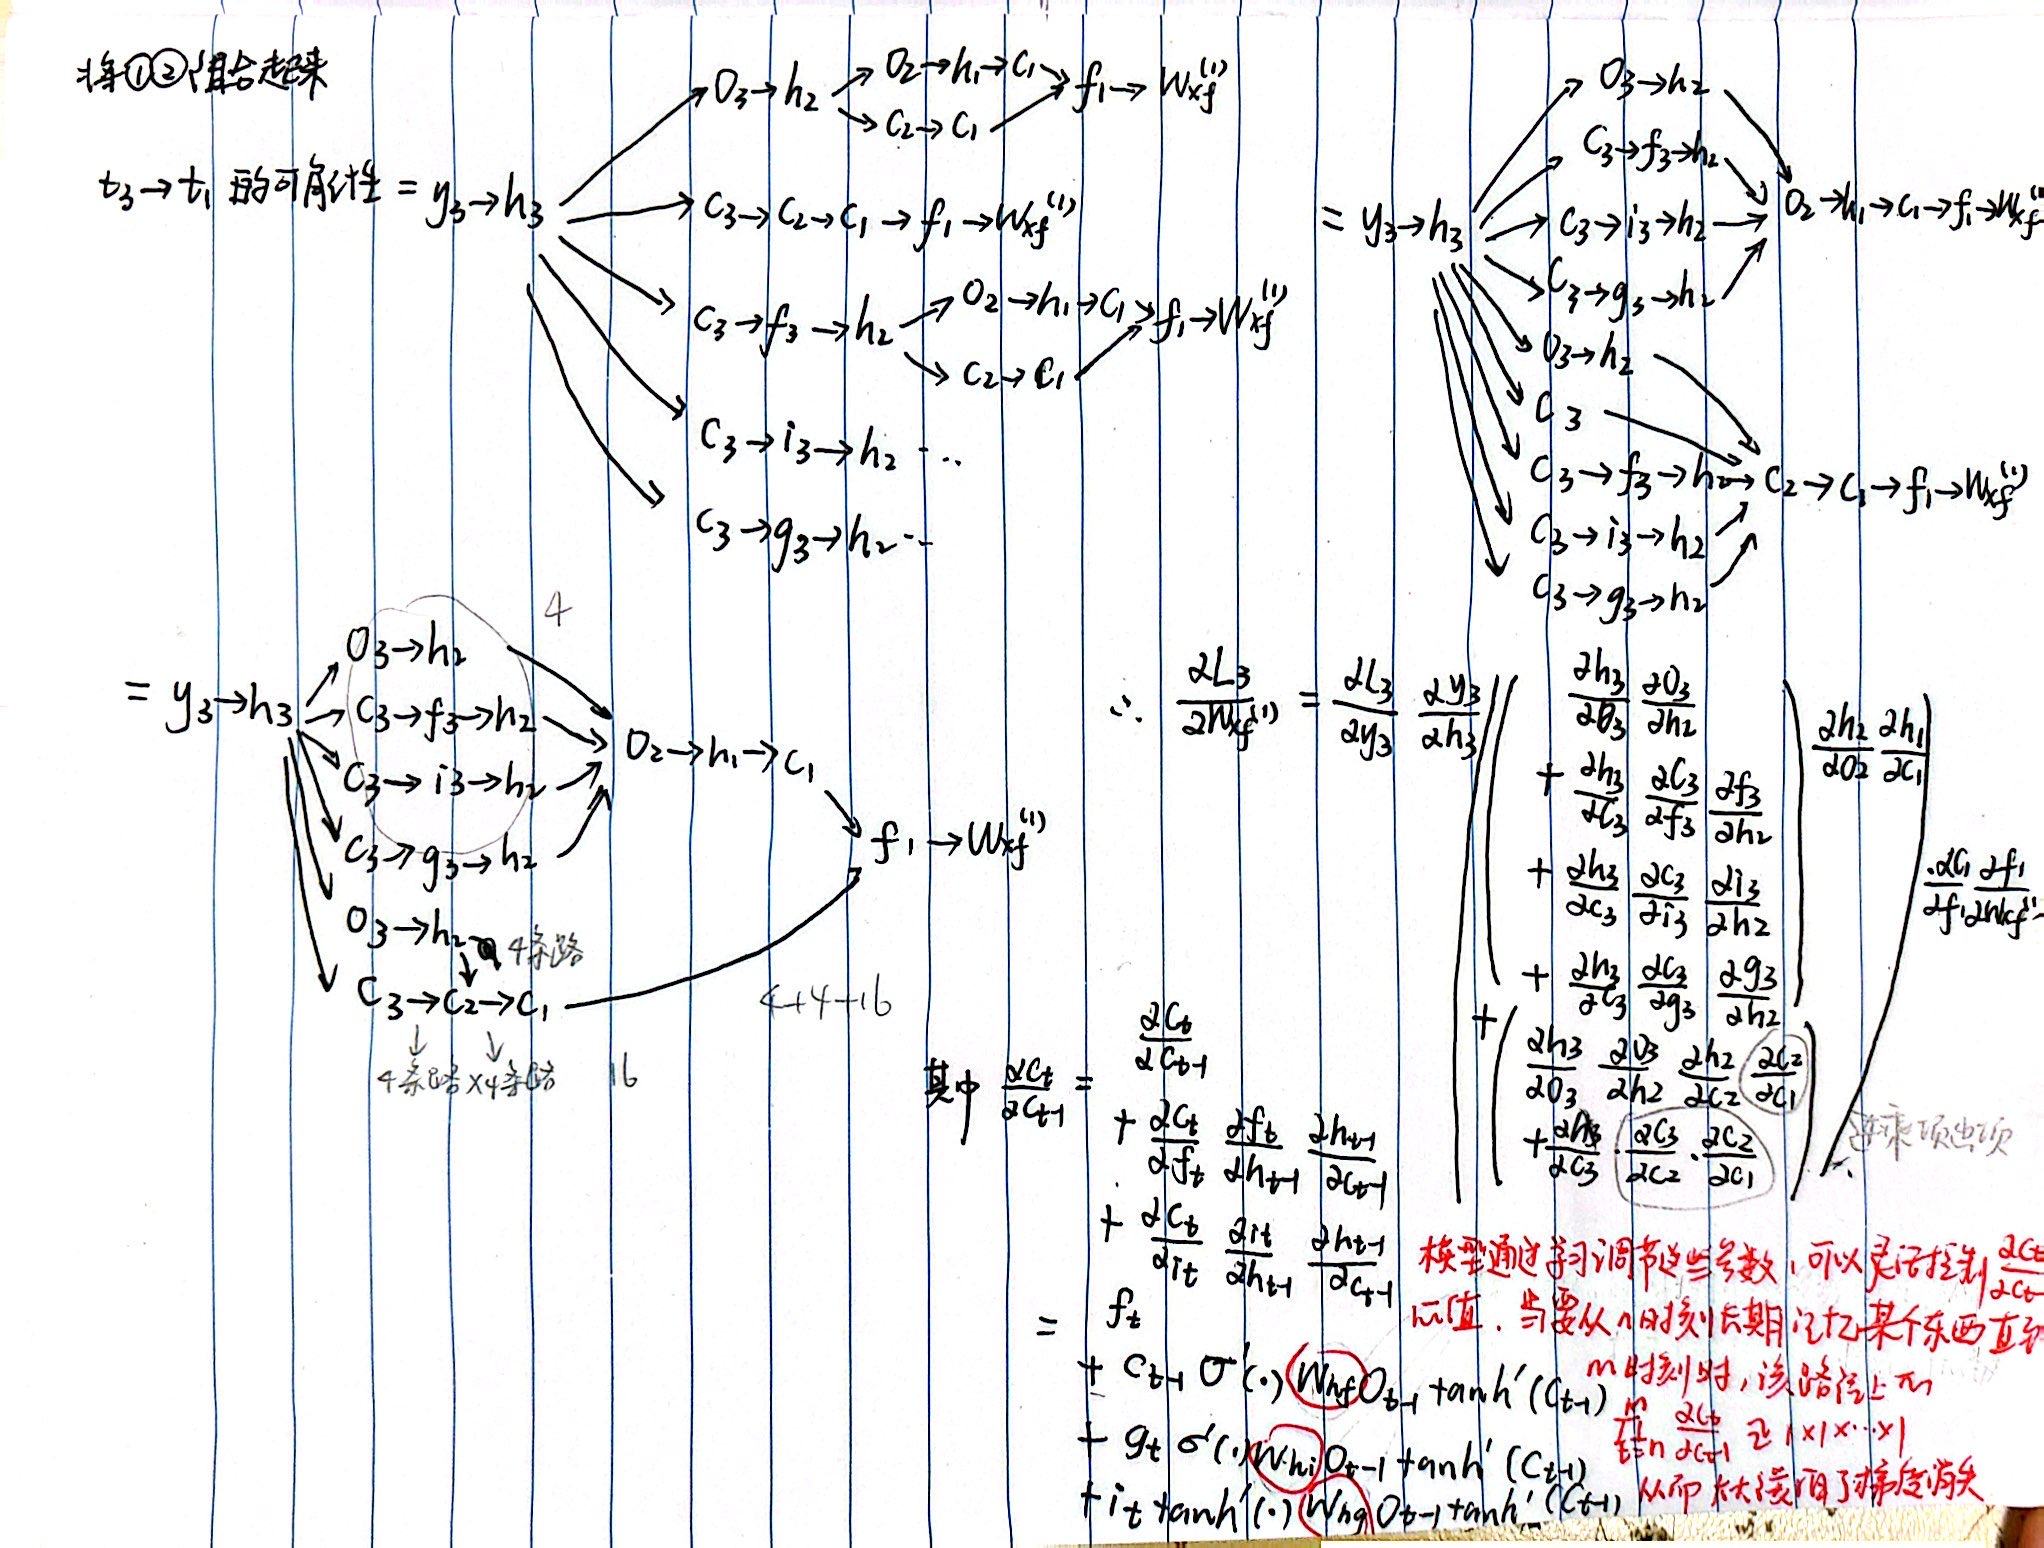 将①②组合起来
t₃→t₁的可解性 = y₃→h₃
O₃→h₂
O₂→h₁→C₁→f₁→Wxf⁽¹⁾
C₂→C₁
C₃→C₂→C₁→f₁→Wxf⁽¹⁾
C₃→f₃→h₂
O₂→h₁→C₁→f₁→Wxf⁽¹⁾
C₂→C₁
C₃→i₃→h₂ …
C₃→g₃→h₂ …
= y₃→h₃
O₃→h₂
C₃→f₃→h₂
C₃→i₃→h₂
C₃→g₃→h₂
O₂→h₁→C₁→f₁→Wxf
O₃→h₂
C₃
C₃→f₃→h₂→C₂→C₁→f₁→Wxf⁽¹⁾
C₃→i₃→h₂
C₃→g₃→h₂
4
= y₃→h₃
O₃→h₂
C₃→f₃→h₂
C₃→i₃→h₂
C₃→g₃→h₂
O₂→h₁→C₁
f₁→Wxf⁽¹⁾
O₃→h₂ 4条路
C₃→C₂→C₁
4条路×4条路 16
4+4+16
∴ ∂L₃/∂Wxf⁽¹⁾ = ∂L₃/∂y₃ ∂y₃/∂h₃ ( ( ∂h₃/∂O₃ ∂O₃/∂h₂
+ ∂h₃/∂C₃ ∂C₃/∂f₃ ∂f₃/∂h₂
+ ∂h₃/∂C₃ ∂C₃/∂i₃ ∂i₃/∂h₂
+ ∂h₃/∂C₃ ∂C₃/∂g₃ ∂g₃/∂h₂ ) ∂h₂/∂O₂ ∂h₁/∂C₁
+ ( ∂h₃/∂O₃ ∂O₃/∂h₂ ∂h₂/∂C₂ ∂C₂/∂C₁
+ ∂h₃/∂C₃ · ∂C₃/∂C₂ · ∂C₂/∂C₁ ) )
· ∂C₁/∂f₁ ∂f₁/∂Wxf⁽¹⁾
连乘项出现
其中 ∂Cₜ/∂Cₜ₋₁ = ∂Cₜ/∂Cₜ₋₁
+ ∂Cₜ/∂fₜ ∂fₜ/∂hₜ₋₁ ∂hₜ₋₁/∂Cₜ₋₁
+ ∂Cₜ/∂iₜ ∂iₜ/∂hₜ₋₁ ∂hₜ₋₁/∂Cₜ₋₁
= fₜ
+ Cₜ₋₁ σ'(·) Whf Oₜ₋₁ tanh'(Cₜ₋₁)
+ gₜ σ'(·) Whi Oₜ₋₁ tanh'(Cₜ₋₁)
+ iₜ tanh'(·) Whg Oₜ₋₁ tanh'(Cₜ₋₁)
模型通过学习调节这些参数，可以灵活控制 ∂Cₜ/∂Cₜ₋₁
的值. 当要从n时刻长期记忆某个东西直到
m时刻时，该路径上的
∏ₜ₌ₙᵐ ∂Cₜ/∂Cₜ₋₁ ≥ 1×1×…×1
从而大大缓解了梯度消失